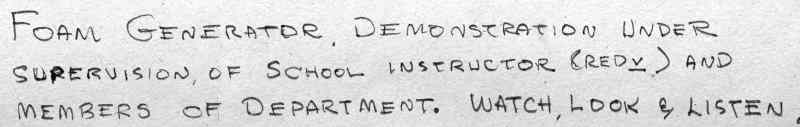 FOAM GENERATOR, DEMONSTRATION UNDER
SUPERVISION, OF SCHOOL INSTRUCTOR (REDY) AND
MEMBERS OF DEPARTMENT. WATCH, LOOK & LISTEN.